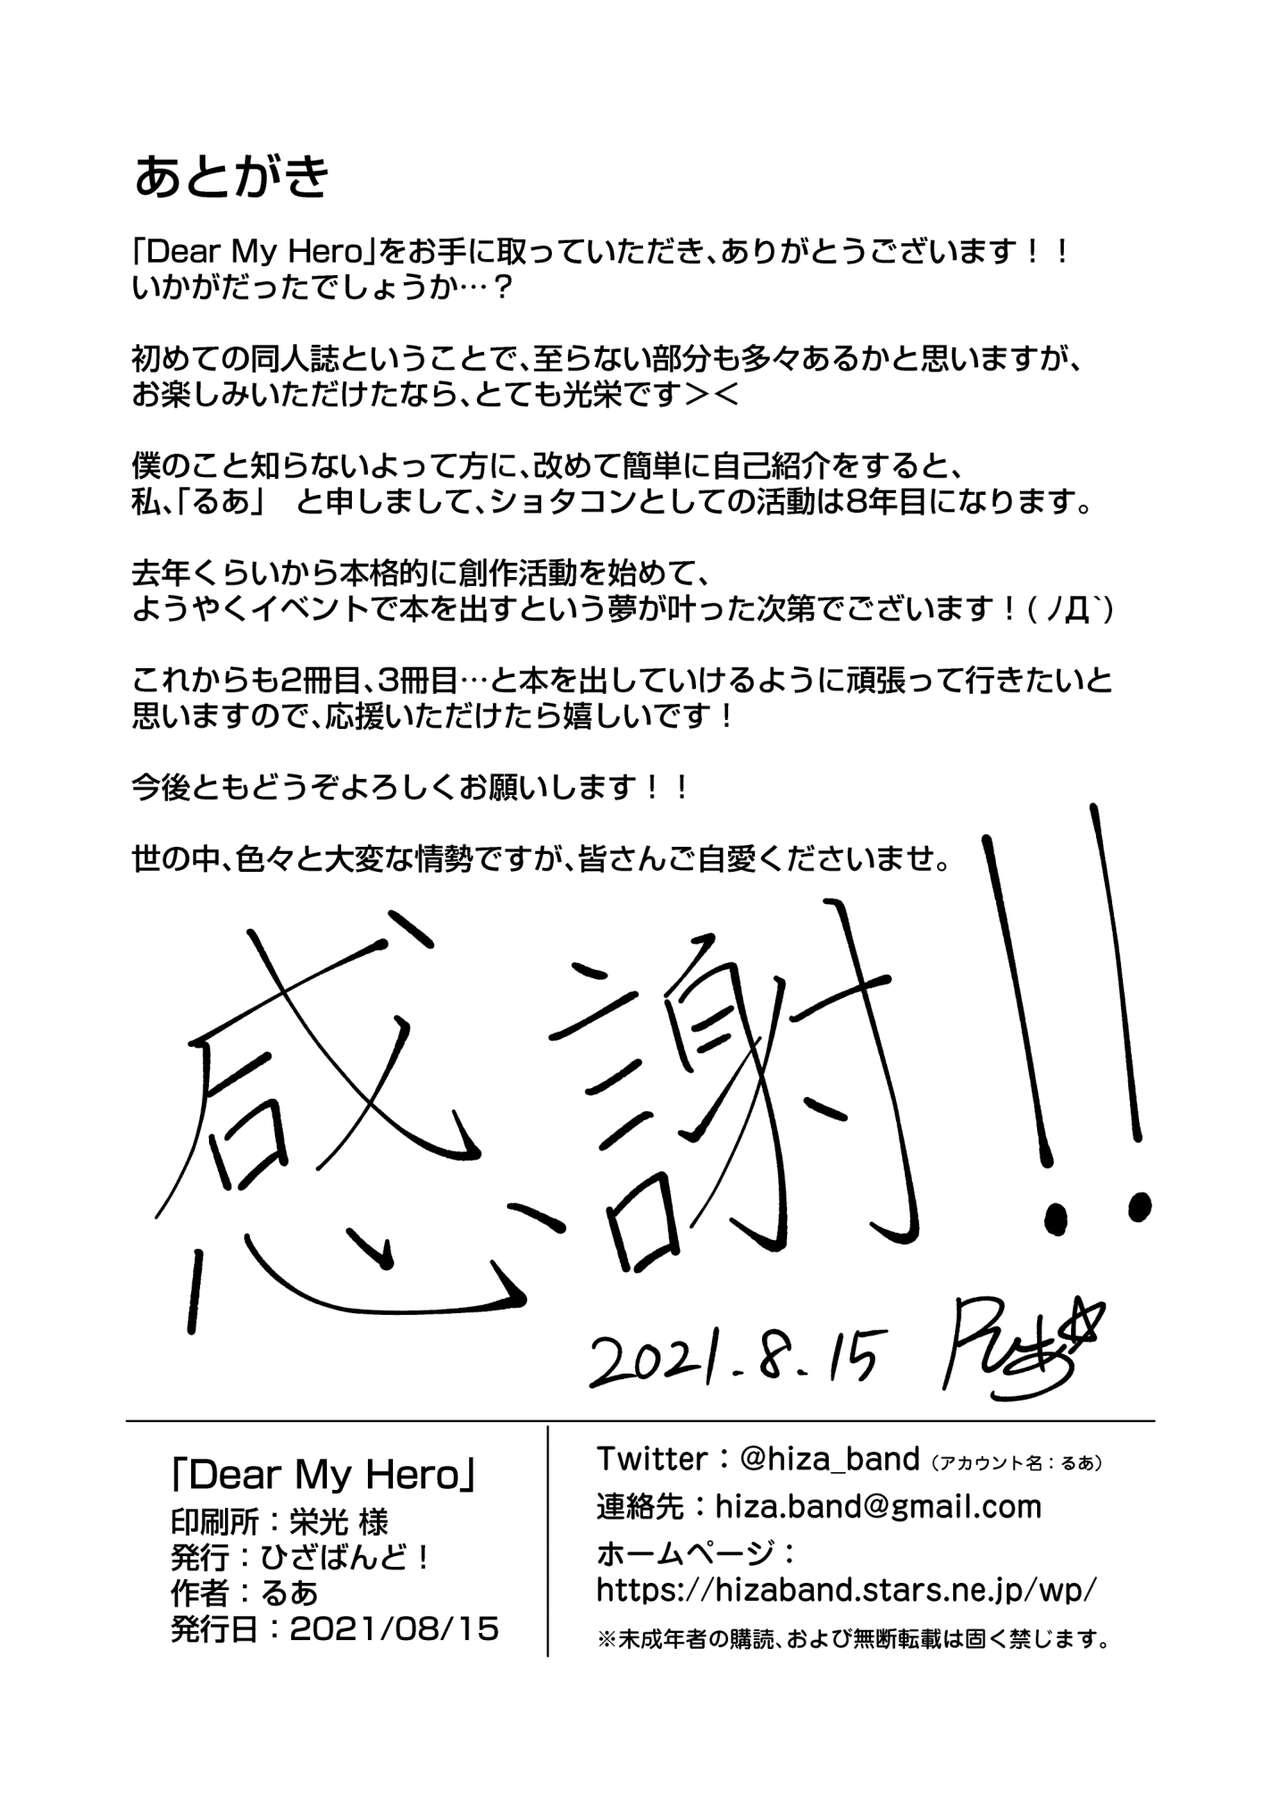 あとがき
「Dear My Hero」をお手に取っていただき、ありがとうございます！！
いかがだったでしょうか…？
初めての同人誌ということで、至らない部分も多々あるかと思いますが、
お楽しみいただけたなら、とても光栄です＞＜
僕のこと知らないよって方に、改めて簡単に自己紹介をすると、
私、「るあ」　と申しまして、ショタコンとしての活動は8年目になります。
去年くらいから本格的に創作活動を始めて、
ようやくイベントで本を出すという夢が叶った次第でございます！( ノД`)
これからも2冊目、3冊目…と本を出していけるように頑張って行きたいと
思いますので、応援いただけたら嬉しいです！
今後ともどうぞよろしくお願いします！！
世の中、色々と大変な情勢ですが、皆さんご自愛くださいませ。
感謝!!
2021.8.15 るあ☆
「Dear My Hero」
印刷所：栄光 様
発行：ひざばんど！
作者：るあ
発行日：2021/08/15
Twitter：@hiza_band（アカウント名：るあ）
連絡先：hiza.band@gmail.com
ホームページ：
https://hizaband.stars.ne.jp/wp/
※未成年者の購読、および無断転載は固く禁じます。